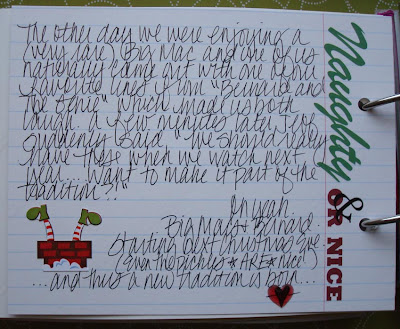 The other day we were enjoying a
(very rare) Big Mac and one of us
naturally came out with one of our
favorite lines from "Bernard and
the Genie" which made us both
laugh. A few minutes later,
suddenly said, "We should really
have these when we watch next
year... Want to make it part of the
tradition??"
Uh yeah.
Big Macs & Bernard.
Starting next Christmas Eve
(even the pickles *ARE* nice!)
...and thus a new tradition is born...
Naughty
& OR NICE